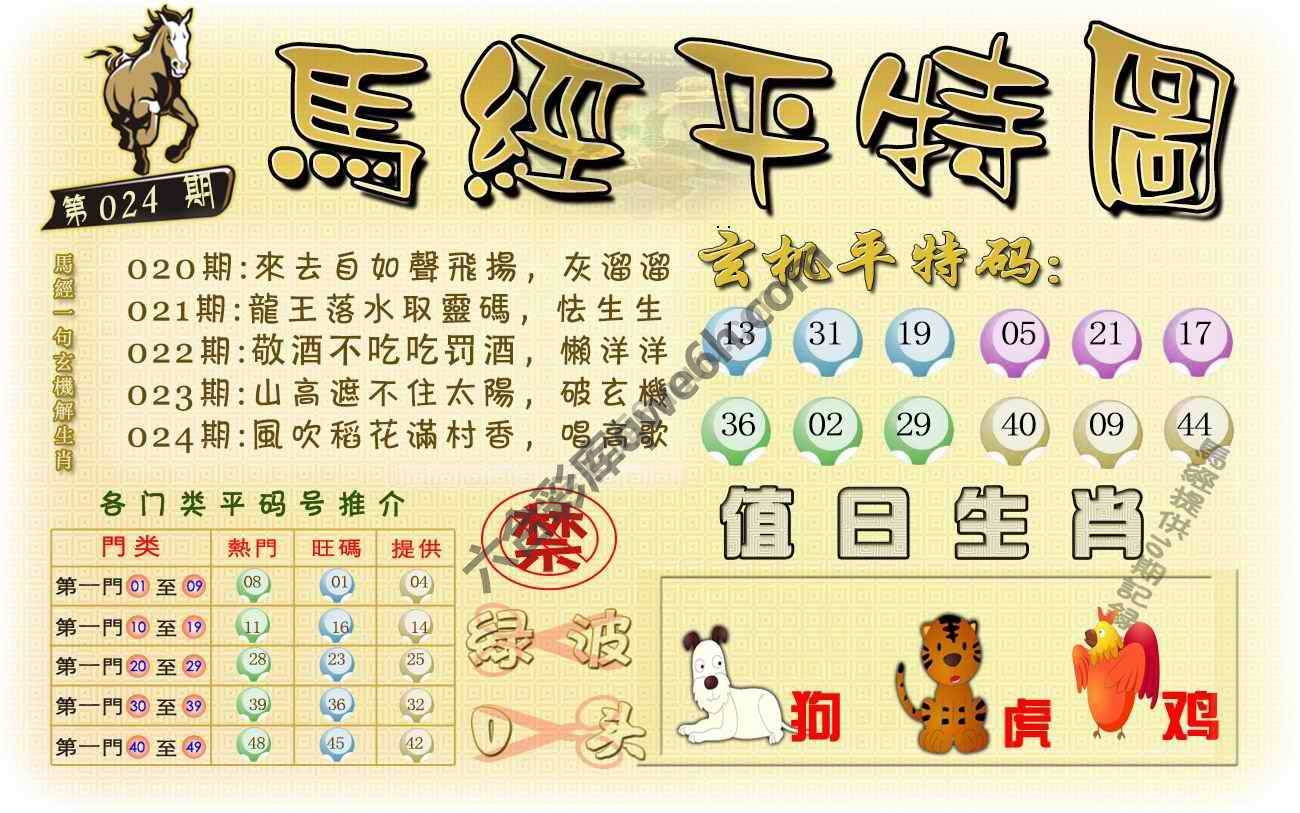 馬經平特圖
第024期
馬經一句玄機解生肖
020期:來去自如聲飛揚，灰溜溜
021期:龍王落水取靈碼，怯生生
022期:敬酒不吃吃罚酒，懶洋洋
023期:山高遮不住太陽，破玄機
024期:風吹稻花滿村香，唱高歌
玄机平特码:
13 31 19 05 21 17
36 02 29 40 09 44
各门类平码号推介
門类 熱門 旺碼 提供
第一門 01 至 09 08 01 04
第一門 10 至 19 11 16 14
第一門 20 至 29 28 23 25
第一門 30 至 39 39 36 32
第一門 40 至 49 48 45 42
禁
绿波
0头
值日生肖
狗 虎 鸡
六合彩库qwe6h.com